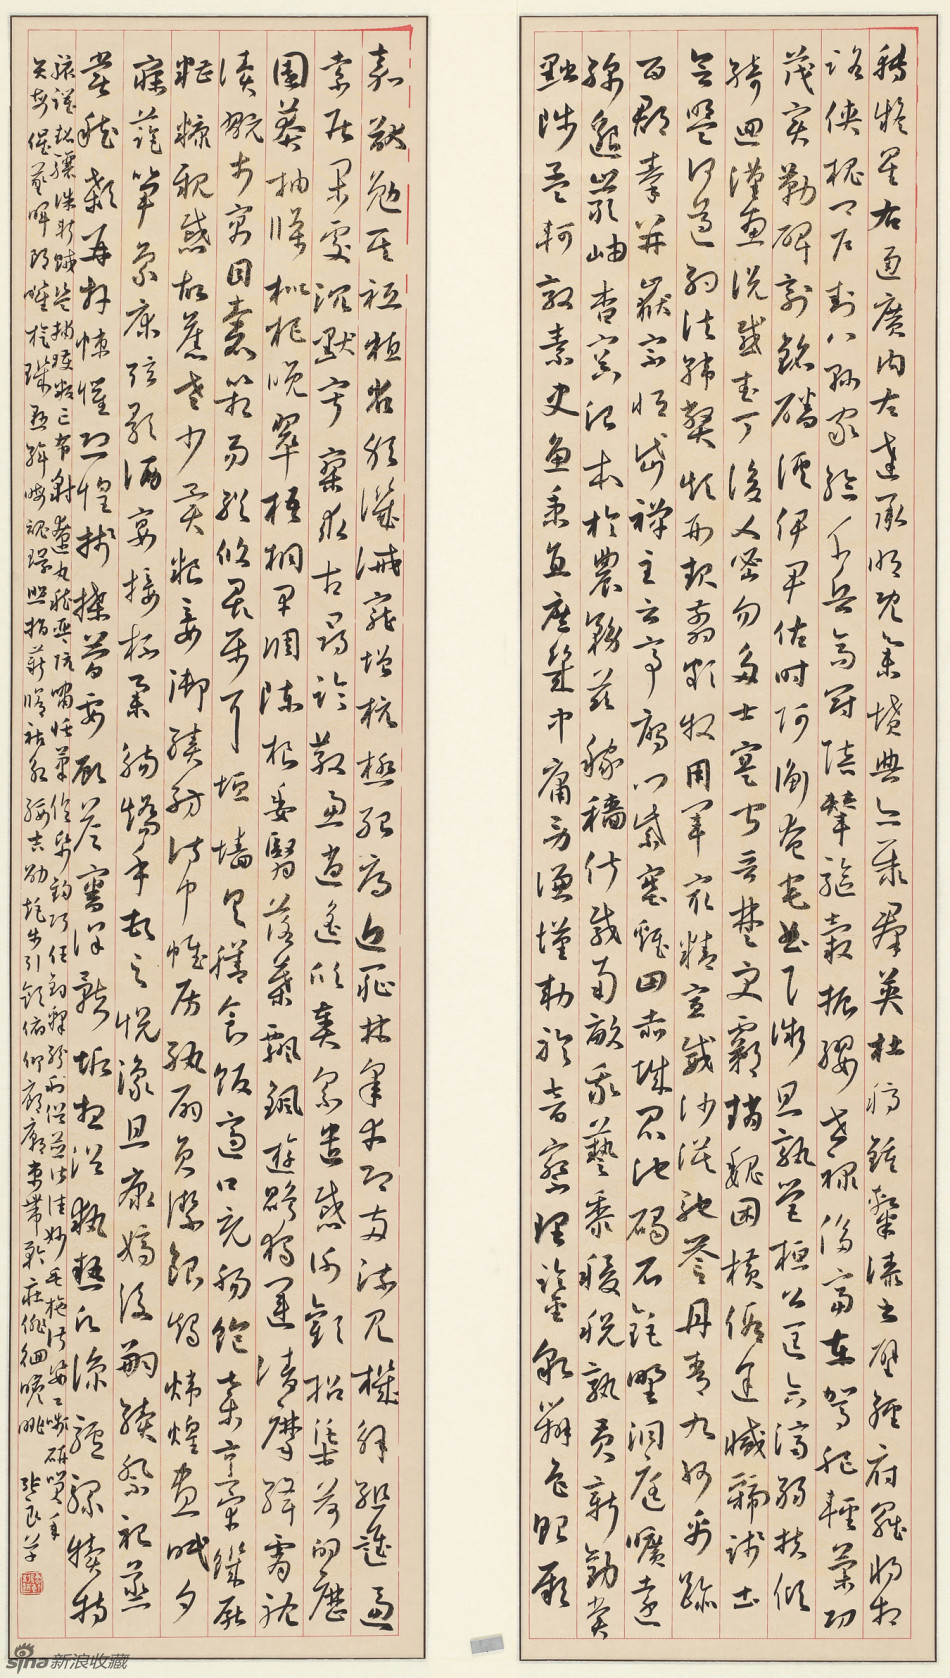 轉疑星右通廣內左達承明既集墳典亦聚群英杜稿鍾隸漆書壁經府羅將相
路俠槐卿戶封八縣家給千兵高冠陪輦驅轂振纓世祿侈富車駕肥輕策功
茂實勒碑刻銘磻溪伊尹佐時阿衡奄宅曲阜微旦孰營桓公匡合濟弱扶傾
綺迴漢惠說感武丁俊乂密勿多士寔寧晉楚更霸趙魏困橫假途滅虢踐土
會盟何遵約法韓弊煩刑起翦頗牧用軍最精宣威沙漠馳譽丹青九州禹跡
百郡秦并嶽宗恒岱禪主云亭雁門紫塞雞田赤城昆池碣石鉅野洞庭曠遠
綿邈巖岫杳冥治本於農務茲稼穡俶載南畝我藝黍稷稅熟貢新勸賞
黜陟孟軻敦素史魚秉直庶幾中庸勞謙謹敕聆音察理鑑貌辨色貽厥
嘉猷勉其祗植省躬譏誡寵增抗極殆辱近恥林皋幸即兩疏見機解組誰逼
索居閑處沉默寂寥求古尋論散慮逍遙欣奏累遣慼謝歡招渠荷的歷
園莽抽條枇杷晚翠梧桐早凋陳根委翳落葉飄颻遊鵾獨運凌摩絳霄耽
讀翫市寓目囊箱易輶攸畏屬耳垣牆具膳餐飯適口充腸飽飫烹宰飢厭
糟糠親戚故舊老少異糧妾御績紡侍巾帷房紈扇圓潔銀燭煒煌晝眠夕
寐藍筍象床弦歌酒宴接杯舉觴矯手頓足悅豫且康嫡後嗣續祭祀蒸
嘗稽顙再拜悚懼恐惶牋牒簡要顧答審詳骸垢想浴執熱願涼驢騾犢特
駭躍超驤誅斬賊盜捕獲叛亡布射遼丸嵇琴阮嘯恬筆倫紙鈞巧任釣釋紛利俗並皆佳妙毛施淑姿工顰妍笑年
矢每催曦暉朗曜璇璣懸斡晦魄環照指薪修祜永綏吉劭矩步引領俯仰廊廟束帶矜莊徘徊瞻眺
sina新浪收藏